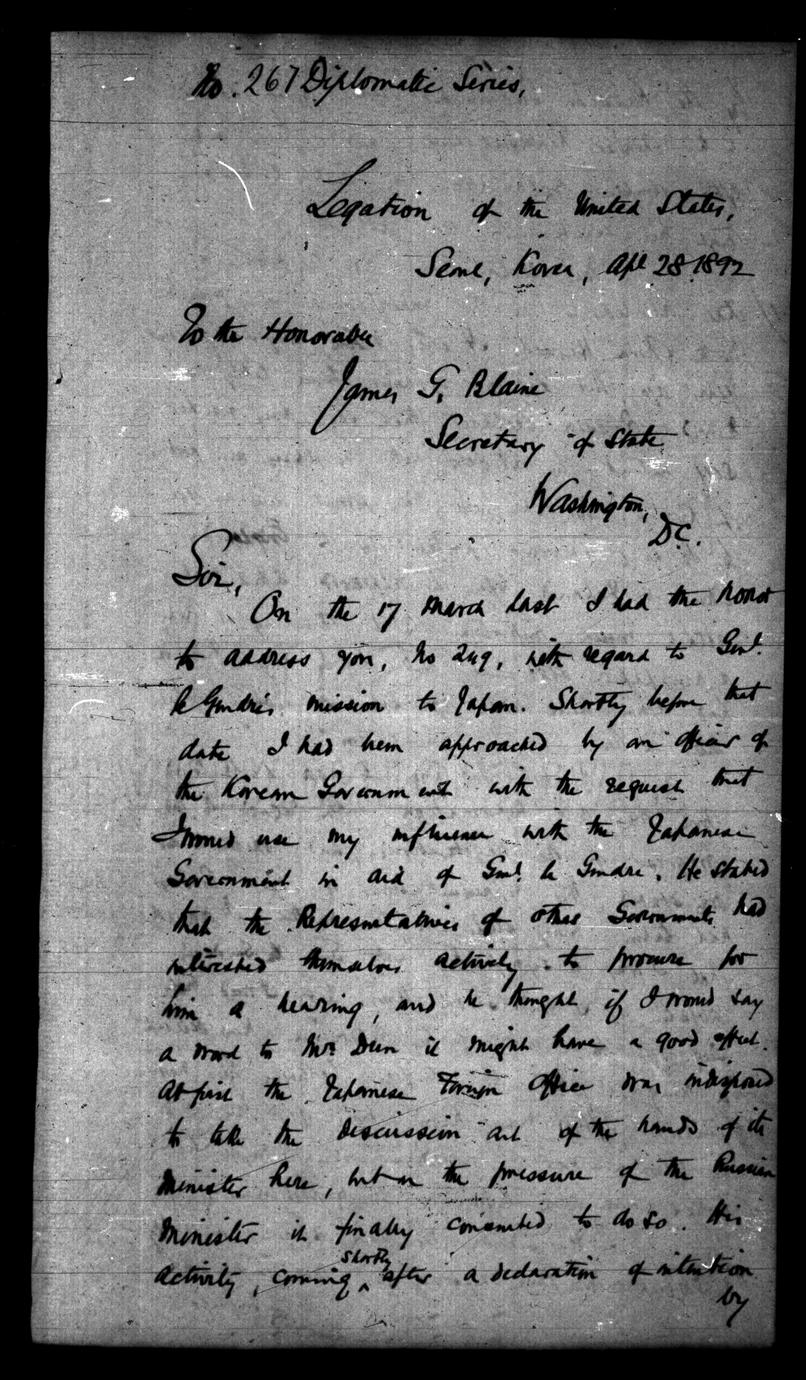 No. 267 Diplomatic Series,
Legation of the United States,
Seoul, Korea, Apl 28 1892
To the Honorable
James G. Blaine
Secretary of State
Washington,
D.C.
Sir,
On the 17 March last I had the honor
to address you, No 249, with regard to Genl.
Le Gendre's mission to Japan. Shortly before that
date I had been approached by an officer of
the Korean Government with the request that
I would use my influence with the Japanese
Government in aid of Genl. Le Gendre. He stated
that the Representatives of other Governments had
interested themselves actively to procure for
him a hearing, and he thought, if I would say
a word to Mr. Dun it might have a good effect.
At first the Japanese Foreign Office was indisposed
to take the discussion out of the hands of its
Minister here, but on the pressure of the Russian
Minister it finally consented to do so. His
activity, coming shortly after a declaration of intention
by